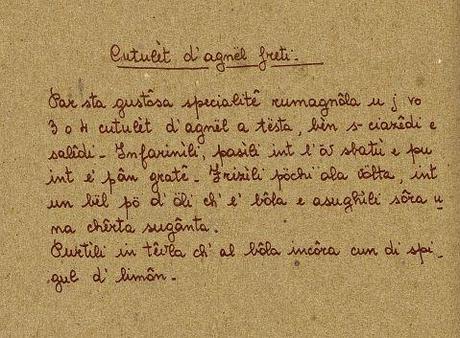 Cutulèt d'agnël freti.
Par sta gustôsa specialitê rumagnôla u j vo
3 o 4 cutulèt d'agnël a tësta, bèn s-ciazêdi e
salêdi. Infarinìli, pasìli int l'ôv sbatù e pu
int e' pân gratê. Frizìli pöchi ala völta, int
un bël pô d'öli ch'e' bôla e asughìli sôra u_
na chêrta sugânta.
Purtìli in têvla ch'al bôla incôra cun di spi_
gul d'limôn.